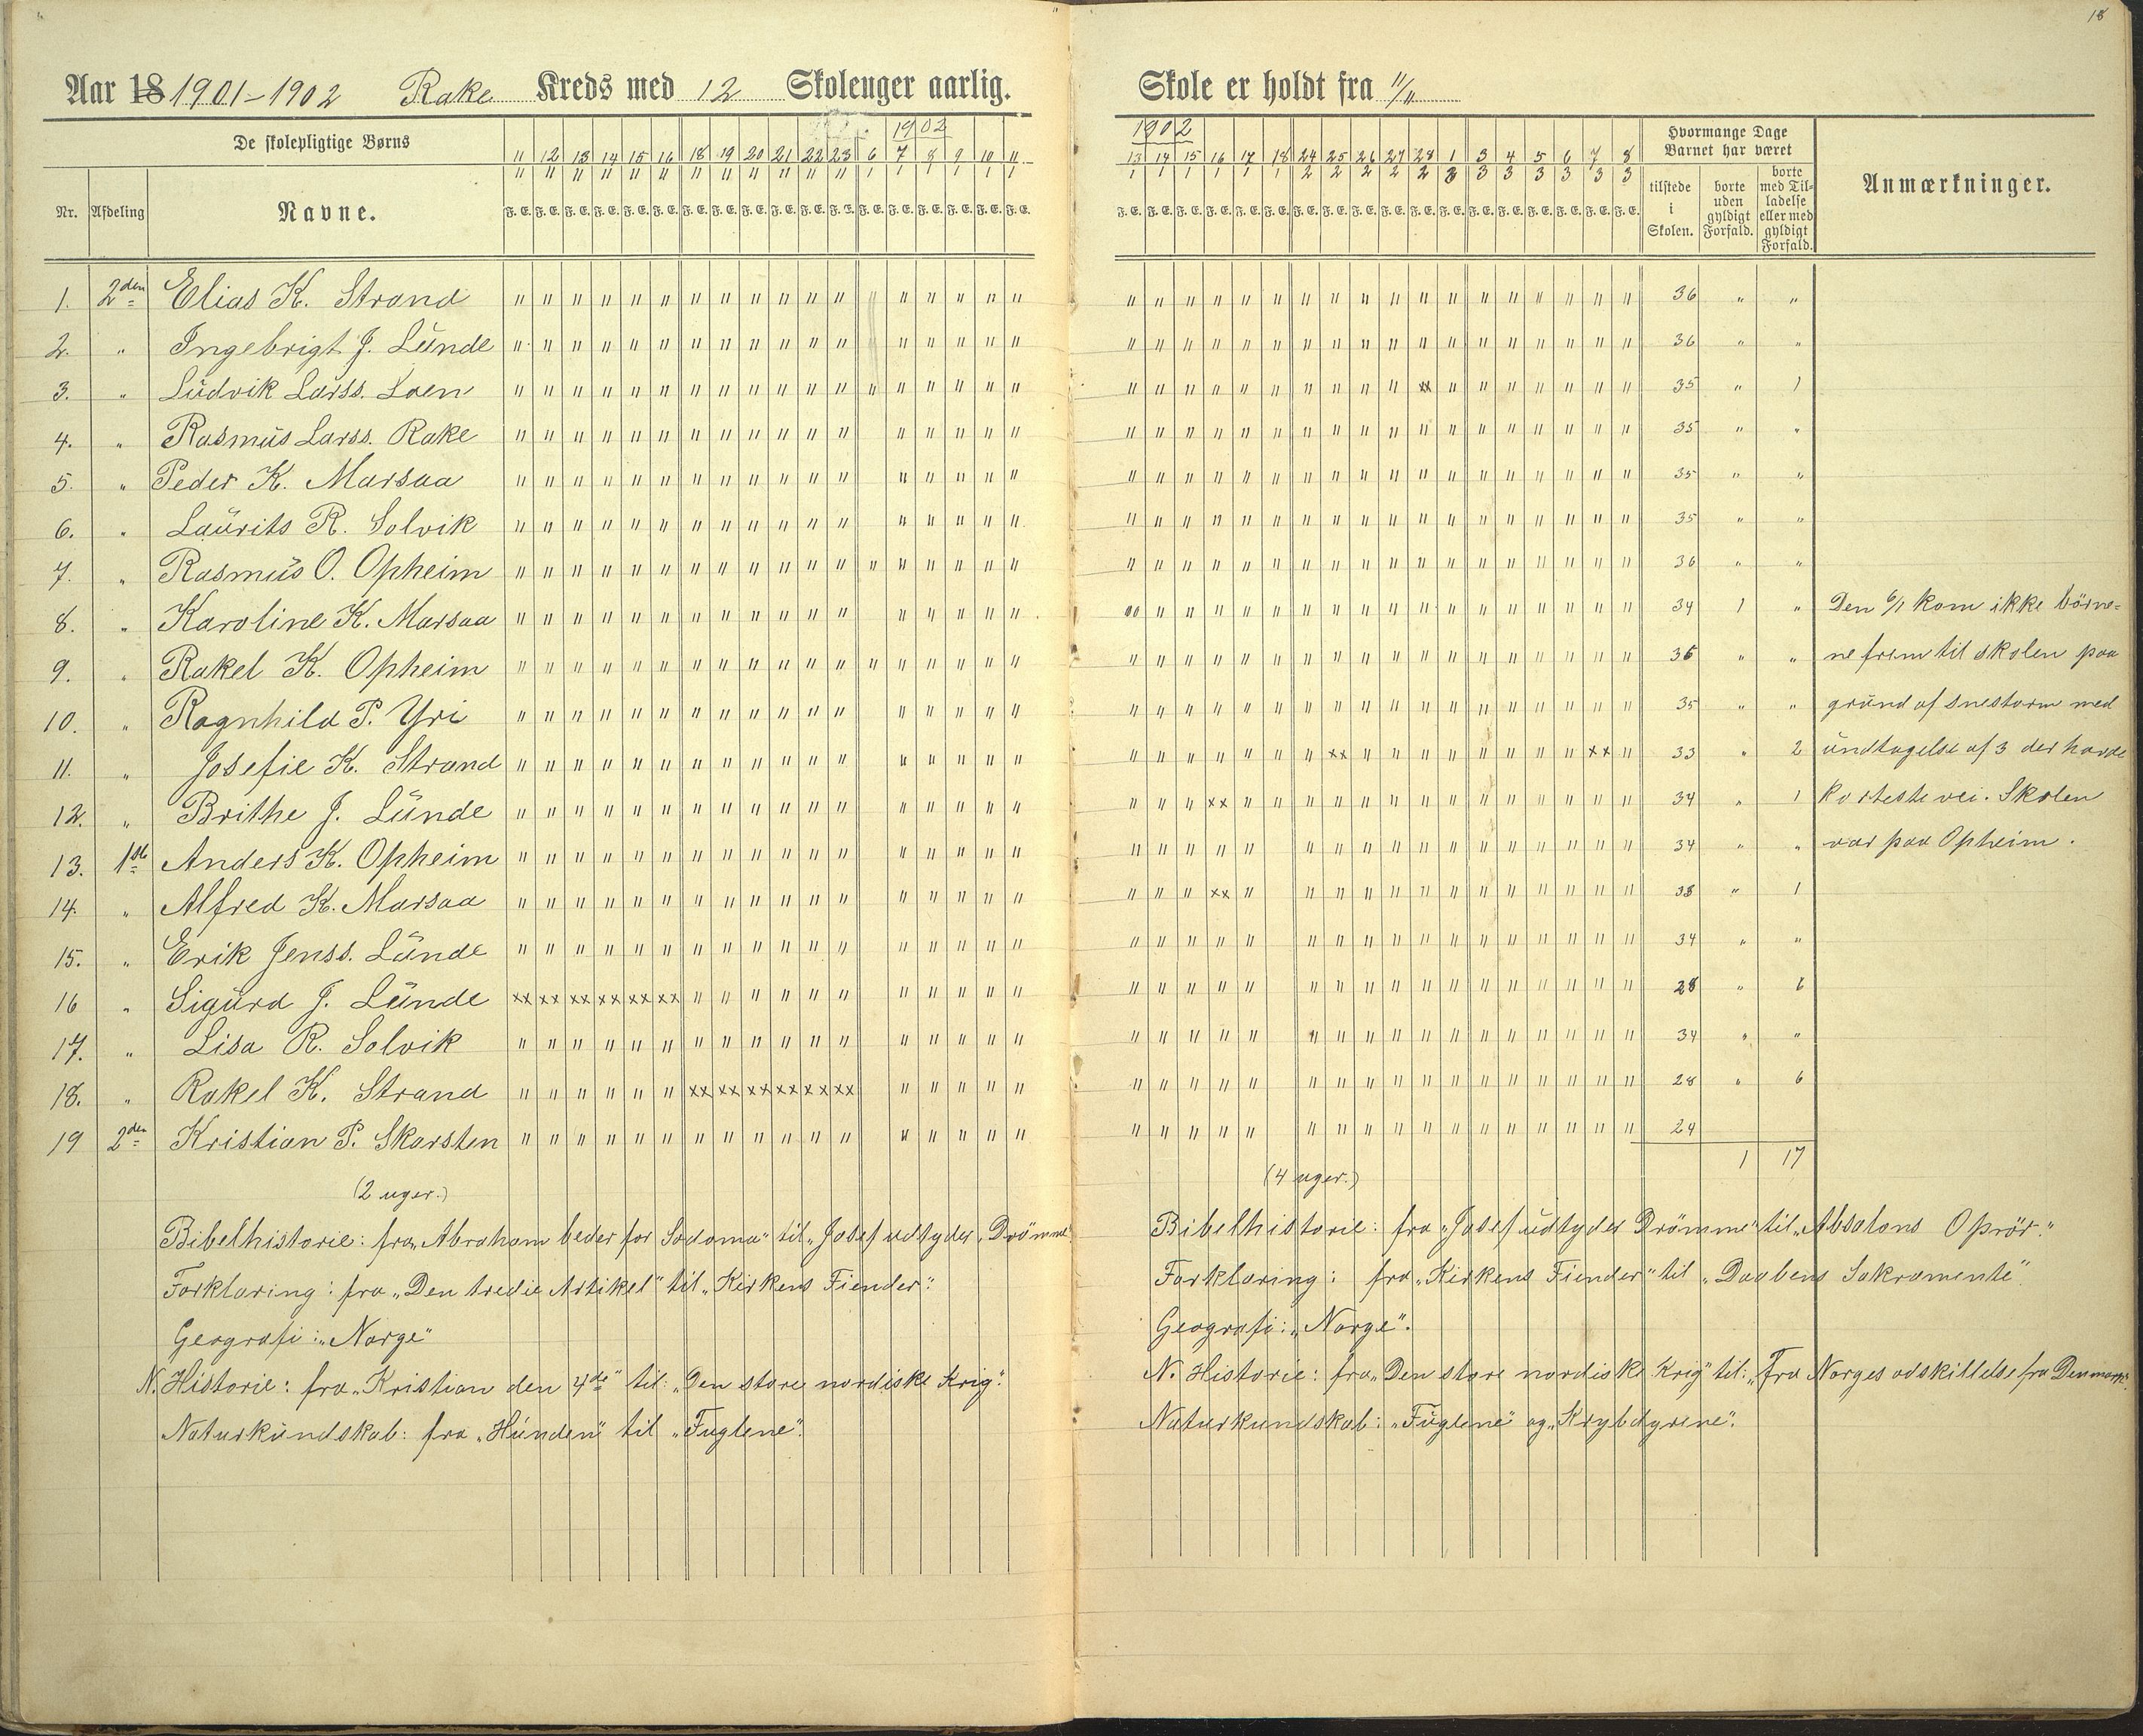 18
Aar 18 1901-1902 Rake Kreds med 12 Skoleuger aarlig.
De skolepligtige Børns
1902
11 12 13 14 15 16 18 19 20 21 22 23 6 7 8 9 10 11
11 11 11 11 11 11 11 11 11 11 11 11 1 1 1 1 1 1
Nr. Afdeling Navne. F. E. F. E. F. E. F. E. F. E. F. E. F. E. F. E. F. E. F. E. F. E. F. E. F. E. F. E. F. E. F. E. F. E. F. E.
1. 2den Elias K. Strand
2. " Ingebrigt J. Lünde
3. " Lüdvik Larss. Loen
4. " Rasmüs Larss. Rake
5. " Peder K. Marsaa
6. " Laürits R. Solvik
7. " Rasmüs O. Opheim
8. " Karoline K. Marsaa
9. " Rakel K. Opheim
10. " Ragnhild P. Yri
11. " Josefie K. Strand
12. " Brithe J. Lünde
13. 1ste Anders K. Opheim
14. " Alfred K. Marsaa
15. " Erik Jenss. Lünde
16 " Sigürd J. Lünde xx xx xx xx xx xx
17. " Lisa R. Solvik
18. " Rakel K. Strand xx xx xx xx xx xx
19 2den Kristian P. Skarsten
(2 uger.)
Bibelhistorie: fra „Abraham beder for Sodoma" til „Josef udtyder Drömme"
Forklaring: fra „Den tredie Artikel" til „Kirkens Fiender".
Geografi: „Norge"
N. Historie: fra „Kristian den 4de" til: „Den store nordiske Krig".
Naturkündskab: fra „Hünden" til „Fuglene".
Skole er holdt fra 11/11
1902
13 14 15 16 17 18 24 25 26 27 28 1 3 4 5 6 7 8
1 1 1 1 1 1 2 2 2 2 2 3 3 3 3 3 3 3
F. E. F. E. F. E. F. E. F. E. F. E. F. E. F. E. F. E. F. E. F. E. F. E. F. E. F. E. F. E. F. E. F. E. F. E.
Hvormange Dage
Barnet har været
tilstede i Skolen.
borte uden gyldigt Forfald.
borte med Til-
ladelse
eller med
gyldigt
Forfald.
Anmærkninger.
36 " "
36 " "
xx 35 " 1
35 " "
35 " "
35 " "
36 " "
oo 34 1 " Den 6/1 kom ikke börne=
36 " " ne frem til skolen paa
35 " " gründ af snestorm med
xx xx 33 " 2 ündtagelse af 3 der havde
xx 34 " 1 korteste vei. Skolen
34 " " var paa Opheim.
xx 33 " 1
34 " "
28 " 6
34 " "
28 " 6
24
1 17
(4 uger.)
Bibelhistorie: fra „Josef üdtyder Drömme" til „Absalons Oprör."
Forklaring: fra „Kirkens Fiender" til „Daabens Sakramente".
Geografi: „Norge".
N. Historie: fra „Den store nordiske Krig" til: „Fra Norges adskillelse fra Denmark".
Naturkundskab: „Füglene" og „Krybdyrene".